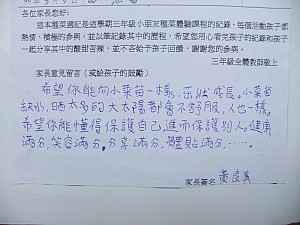 各位家長您好:
這本種菜週記是這學期三年級小朋友種菜體驗課程的紀錄,每個活動孩子都
熱情、積極的參與,並以筆記錄其中的歷程,希望您用心看完孩子的紀錄和孩子
一起分享其中的酸甜苦辣,並不吝給予孩子回饋,謝謝您的參與。
三年級全體教師敬上
家長意見留言(或給孩子的鼓勵)
希望你能向小菜苗一樣,茁壯成長。小菜苗
缺水,晒太多的大太陽都會不舒服,人也一樣。
希望你能懂得保護自己,進而保護別人。健康
滿分,笑容滿分,分享滿分,體貼滿分,……。
家長簽名 黃